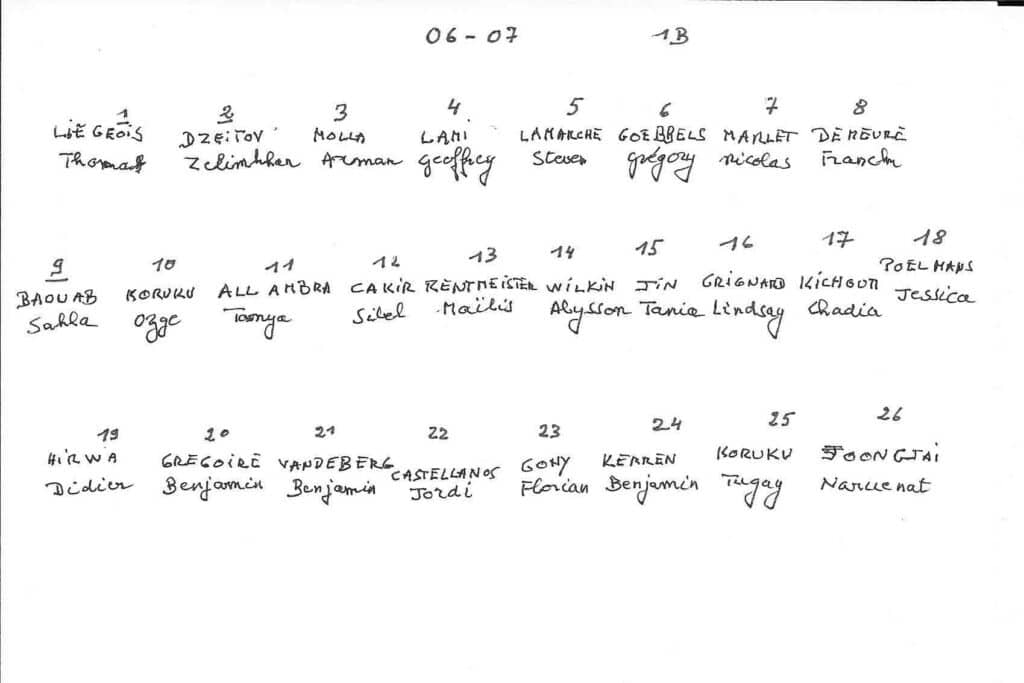 06-07 1B
1 2 3 4 5 6 7 8
LIÉGEOIS DZEITOV MOLLA LAMI LAMARCHE GOEBBELS MARLET DEMEURE
Thomas Zelimkhan Arman Geoffrey Steven Grégory Nicolas
9 10 11 12 13 14 15 16 17 18
BAOUAB KORUKU ALLAMBRA CAKIR RENTMEISTER WILKIN JIN GRIGNARD KICHOUH POELMANS
Sahla Ozge Taonya Sibel Maïlis Alysson Tania Lindsay Chadia Jessica
19 20 21 22 23 24 25 26
HIRWA GREGOIRE VANDEBERG CASTELLANOS GOHY KERREN KORUKU JOONGJAI
Didier Benjamin Benjamin Jordi Florian Benjamin Tugay Naruenat